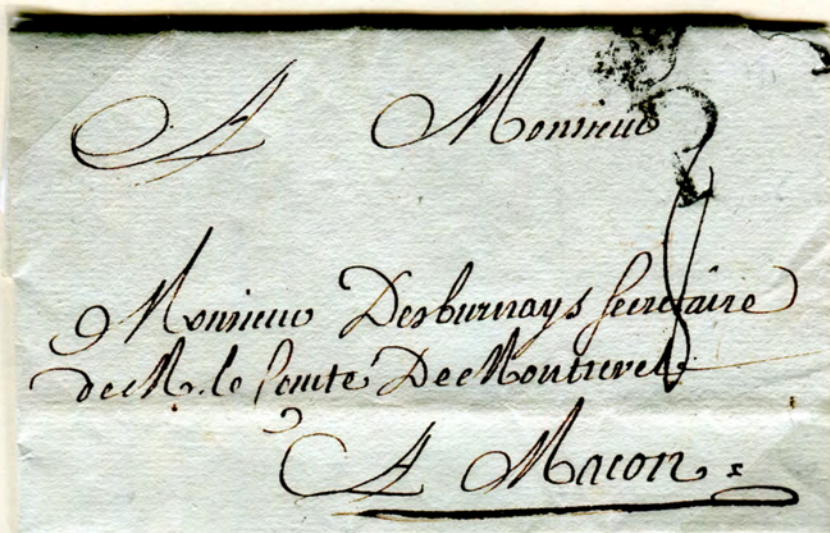 A Monsieur
8
Monsieur Desburnays Secretaire
de M. le Comte De Montrevel
A Macon